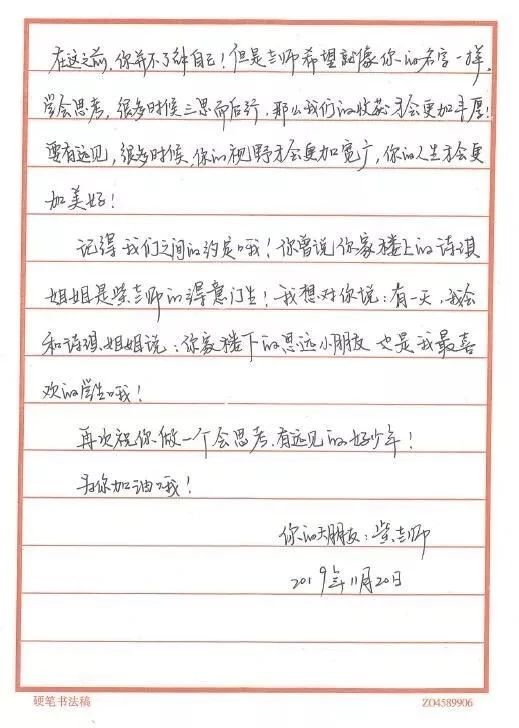 在这之前，你并不了解自己！但是老师希望就像你的名字一样，
学会思考，很多时候三思而后行，那么我们的收获才会更加丰厚！
要有远见，很多时候，你的视野才会更加宽广，你的人生才会更
加美好！
记得我们之间的约定哦！你曾说你家楼上的诗琪
姐姐是柴老师的得意门生！我想对你说：有一天，我会
和诗琪姐姐说：你家楼下的思远小朋友也是我最喜
欢的学生哦！
再次祝你做一个会思考，有远见的好少年！
为你加油哦！
你的大朋友：柴老师
2019年11月20日
硬笔书法稿
ZO4589906